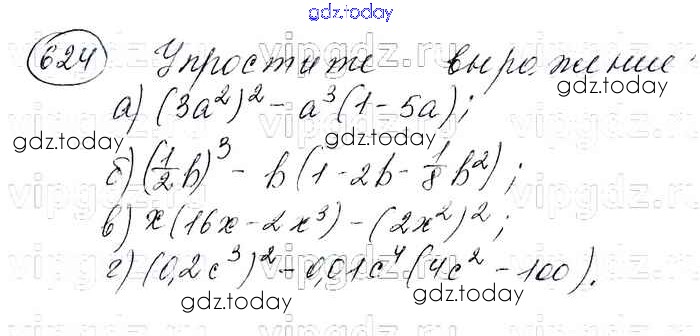 gdz.today
624 Упростите выражение:
gdz.today
а) (3a²)² - a³(1-5a);
gdz.today
gdz.today
б) (1/2 b)³ - b(1-2b-1/8 b²);
в) x(16x-2x³)-(2x²)²;
gdz.today
г) (0,2c³)² - 0,01c⁴(4c²-100).
gdz.today
gdz.today